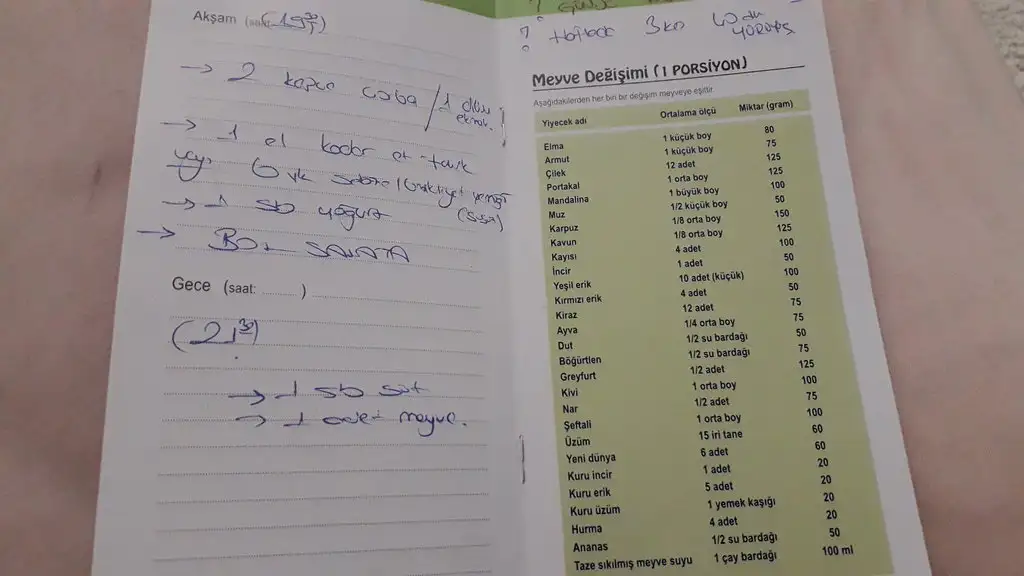 Akşam (saat: 19³⁰)
→ 2 kepçe çorba / 1 dilim ekmek.
→ 1 el kadar et - tavuk
veya 6 yk sebze / bakliyat yemeği
→ 1 sb yoğurt
→ BOL SALATA
Gece (saat: ........)
(21³⁰)
→ 1 sb süt
→ 1 adet meyve.
? Haftada 3 kez 40 dk
YÜRÜYÜŞ
Meyve Değişimi (1 PORSİYON)
Aşağıdakilerden her biri bir değişim meyveye eşittir.
Yiyecek adı Ortalama ölçü Miktar (gram)
Elma 1 küçük boy 80
Armut 1 küçük boy 75
Çilek 12 adet 125
Portakal 1 orta boy 125
Mandalina 1 büyük boy 100
Muz 1/2 küçük boy 50
Karpuz 1/8 orta boy 150
Kavun 1/8 orta boy 125
Kayısı 4 adet 100
İncir 1 adet 50
Yeşil erik 10 adet (küçük) 100
Kırmızı erik 4 adet 50
Kiraz 12 adet 75
Ayva 1/4 orta boy 75
Dut 1/2 su bardağı 50
Böğürtlen 1/2 su bardağı 75
Greyfurt 1/2 adet 125
Kivi 1 orta boy 100
Nar 1/2 adet 75
Şeftali 1 orta boy 100
Üzüm 15 iri tane 60
Yeni dünya 6 adet 60
Kuru incir 1 adet 20
Kuru erik 5 adet 20
Kuru üzüm 1 yemek kaşığı 20
Hurma 4 adet 20
Ananas 1/2 su bardağı 50
Taze sıkılmış meyve suyu 1 çay bardağı 100 ml